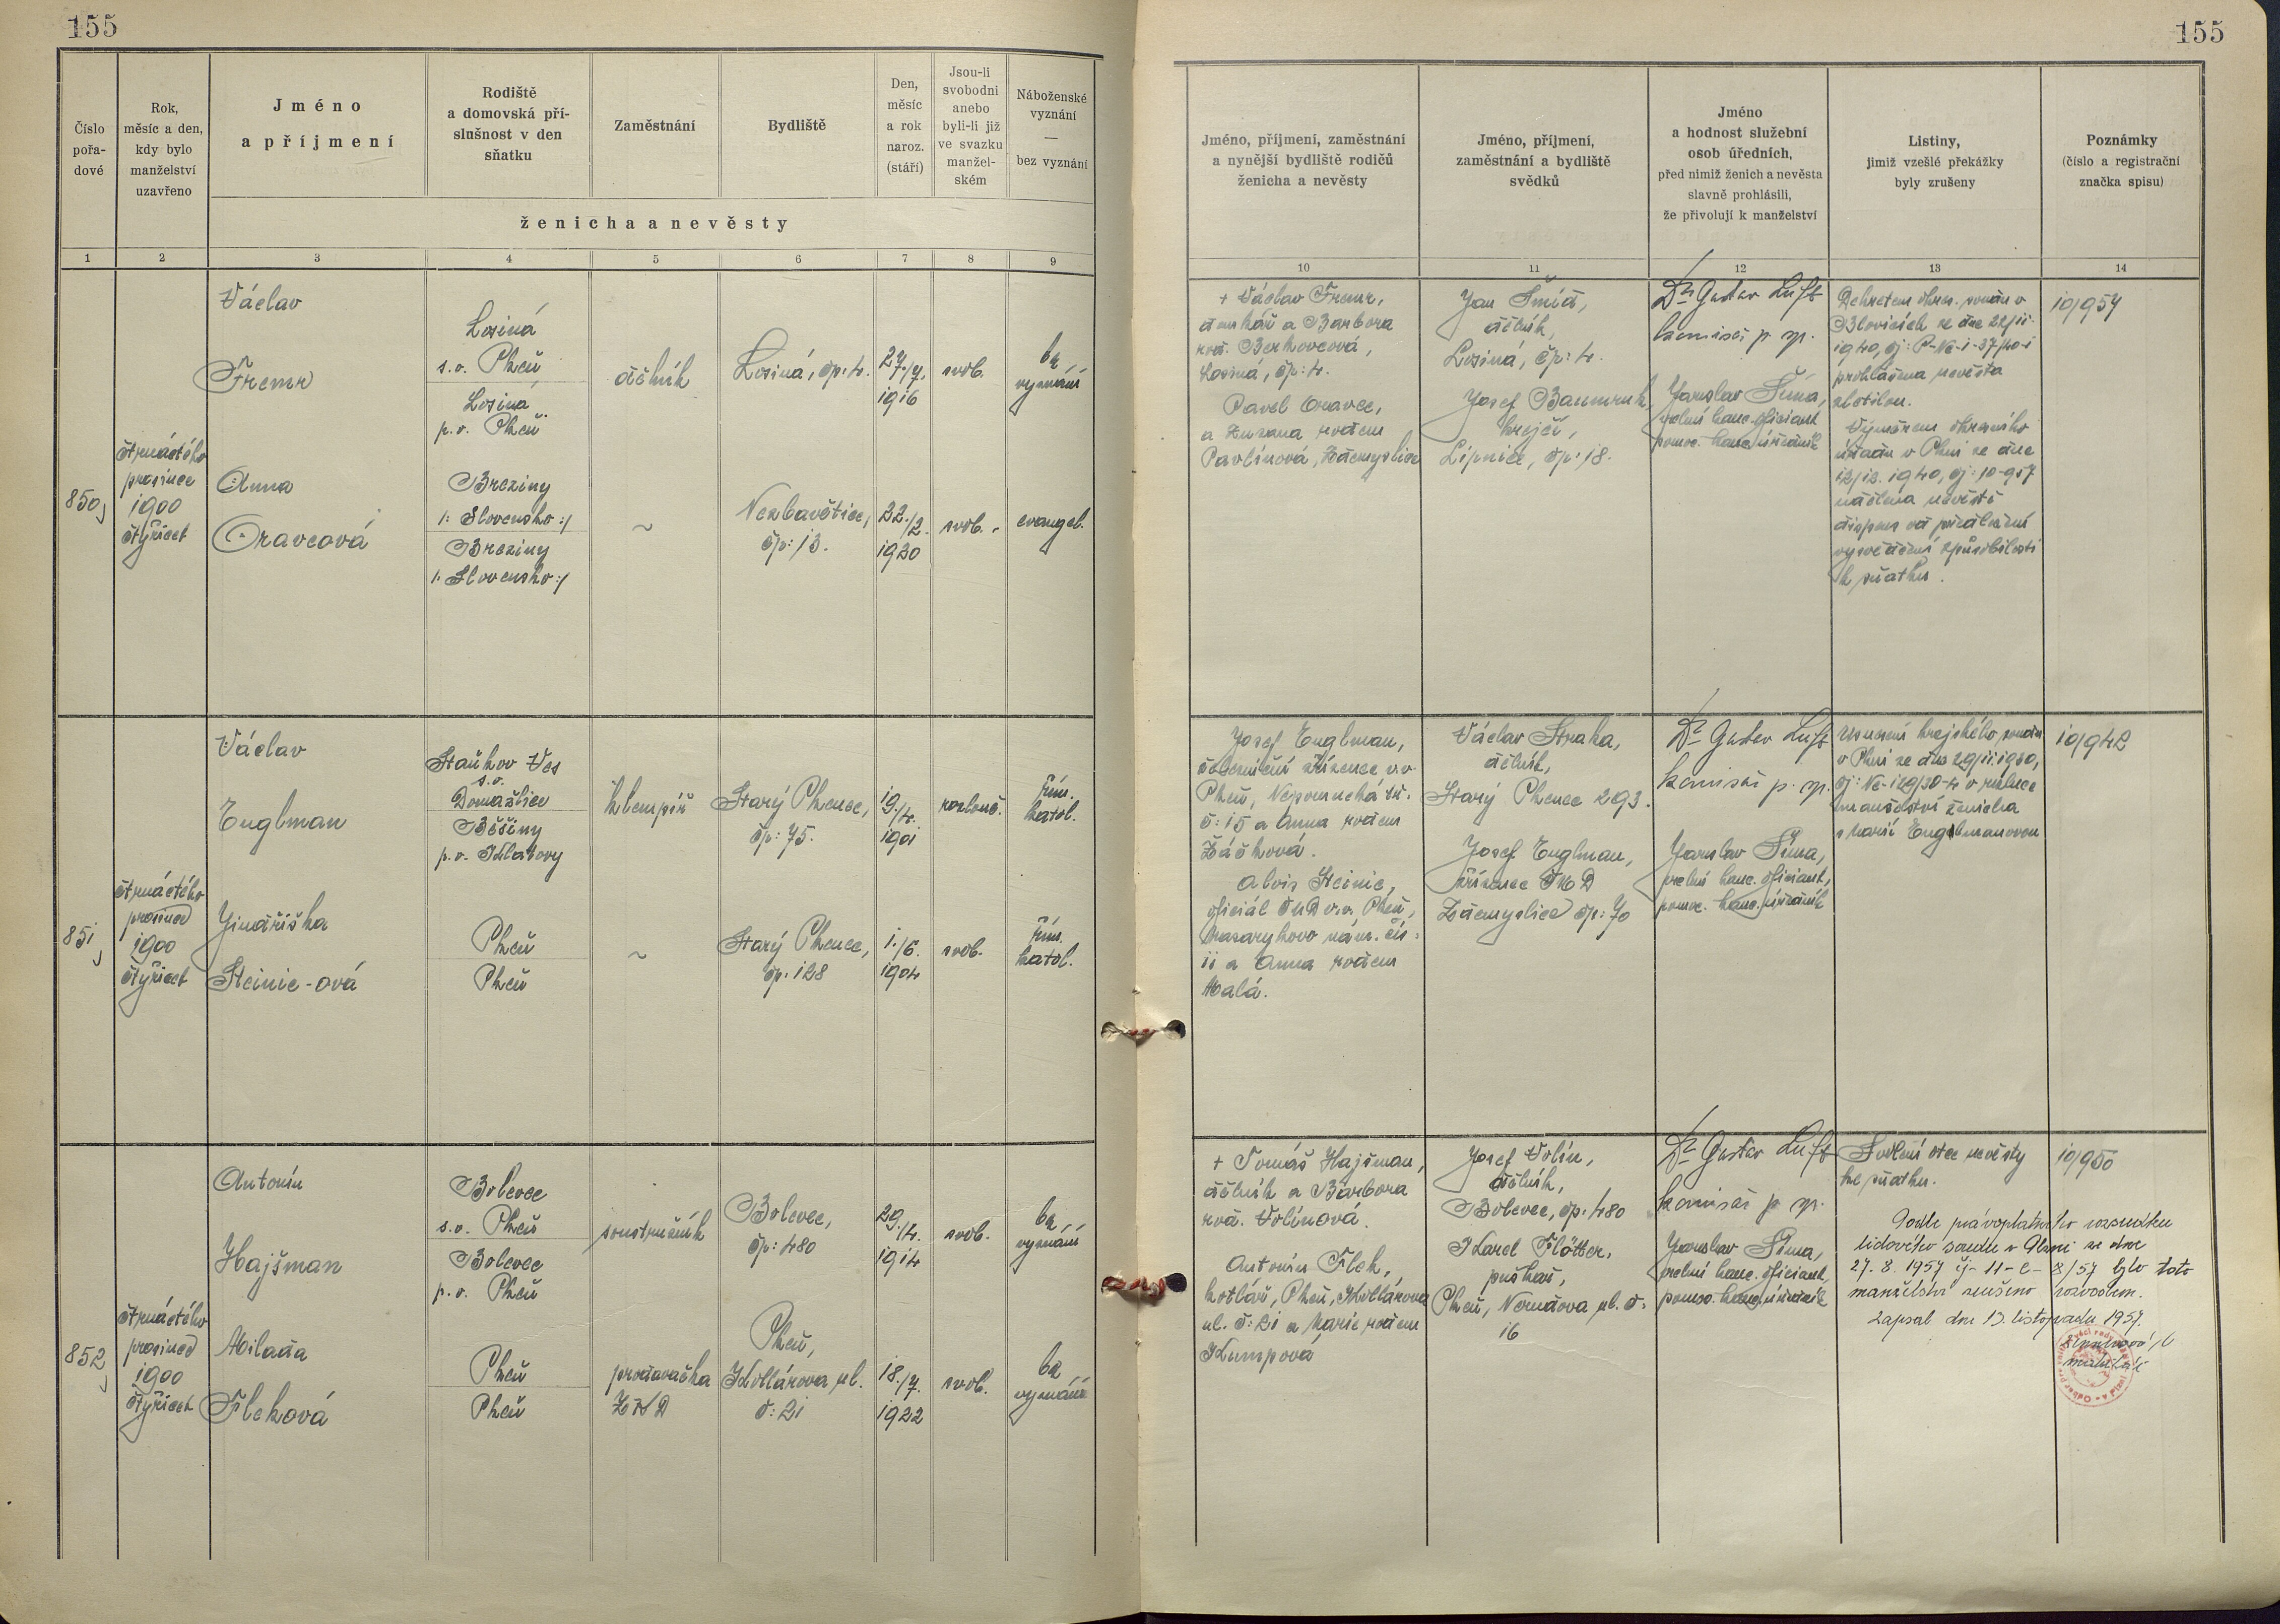 155
155
Číslo
pořa-
dové
Rok,
měsíc a den,
kdy bylo
manželství
uzavřeno
Jméno
a příjmení
Rodiště
a domovská pří-
slušnost v den
sňatku
Zaměstnání
Bydliště
Den,
měsíc
a rok
naroz.
(stáří)
Jsou-li
svobodni
anebo
byli-li již
ve svazku
manžel-
ském
Náboženské
vyznání
—
bez vyznání
ženicha a nevěsty
Jméno, příjmení, zaměstnání
a nynější bydliště rodičů
ženicha a nevěsty
Jméno, příjmení,
zaměstnání a bydliště
svědků
Jméno
a hodnost služební
osob úředních,
před nimiž ženich a nevěsta
slavně prohlásili,
že přivolují k manželství
Listiny,
jimiž vzešlé překážky
byly zrušeny
Poznámky
(číslo a registrační
značka spisu)
1 2 3 4 5 6 7 8 9
10 11 12 13 14
850
čtrnáctého
prosince
1900
čtyřicet
Václav
Fremr
Losiná
s.o. Plzeň
Losiná
p.o. Plzeň
dělník
Losiná, čp: 4.
27./7.
1916
svob.
bz
vyznání
Anna
Oravcová
Breziny
/: Slovensko :/
Breziny
/: Slovensko :/
~
Nezbavětice,
čp: 13.
22./2.
1920
svob.
evangel.
+ Václav Fremr,
domkář a Barbora
roz. Berkovcová,
Losiná, čp: 4.
Pavel Oravec,
a Zuzana rozem
Pavlínová, Zdemyslice
Jan Šmíd,
dělník,
Losiná, čp: 4.
Josef Baumruk,
krejčí,
Lipnice, čp: 18.
Dr Gustav Luft
komisař p. sp.
Jaroslav Šíma,
velní kanc. oficiant
pomoc. kanc. úředník
Dekretem okres. soudu v
Blovicích ze dne 22/11
1940, čj: P-Nc-1-37/40-1
prohlášena nevěsta
zletilou.
Výměrem okresního
úřadu v Plzni ze dne
12/12. 1940, čj: 10-957
udělena nevěstě
dispens od předložení
vysvědčení způsobilosti
k sňatku.
10/957
851
čtrnáctého
prosince
1900
čtyřicet
Václav
Englman
Staňkov Ves
s.o.
Domažlice
Běšiny
p.o. Klatovy
klempíř
Starý Plzenec,
čp: 75.
19./4.
1901
rozlouč.
řím.
katol.
Jindřiška
Steinic-ová
Plzeň
Plzeň
~
Starý Plzenec,
čp: 128
1./6.
1904
svob.
řím.
katol.
Josef Englman,
železniční zřízenec v.v.
Plzeň, Nepomucká tř.
č: 15 a Anna rozem
Žáčková.
Alois Steinic,
oficiál ČMD v.v. Plzeň,
Masarykovo nám. čís:
11 a Anna rozem
Malá.
Václav Straka,
dělník,
Starý Plzenec 293.
Josef Englman,
zřízenec ČMD
Zdemyslice čp: 70
Dr Gustav Luft
komisař p. sp.
Jaroslav Šíma,
velní kanc. oficiant,
pomoc. kanc. úředník
Usnesení krajského soudu
v Plzni ze dne 29/11 1930,
čj: Nc-129/30-4 o rozluce
manželství ženicha
s Marií Englmanovou
10/942
852
čtrnáctého
prosince
1900
čtyřicet
Antonín
Hajšman
Bolevec
s.o. Plzeň
Bolevec
p.o. Plzeň
soustružník
Bolevec,
čp: 480
29./4.
1914
svob.
bz
vyznání
Milada
Fleková
Plzeň
Plzeň
prodavačka
ZKD
Plzeň,
Kollárova ul.
č: 21
18./7.
1922
svob.
bz
vyznání
+ Tomáš Hajšman,
dělník a Barbora
roz. Volínová.
Antonín Flek,
kotlář, Plzeň, Kollárova
ul. č: 21 a Marie rozem
Klumpová
Josef Volín,
dělník,
Bolevec, čp. 480
Karel Flötter,
puškař,
Plzeň, Nerudova ul. č:
16
Dr Gustav Luft
komisař p. sp.
Jaroslav Šíma,
velní kanc. oficiant,
pomoc. kanc. úředník
Svolení otce nevěsty
ke sňatku.
10/950
Podle právoplatného rozsudku
lidového soudu v Plzni ze dne
27. 8. 1957 čj- 11-C- 8/57 bylo toto
manželství zrušeno rozvodem.
Zapsal dne 13. listopadu 1957.